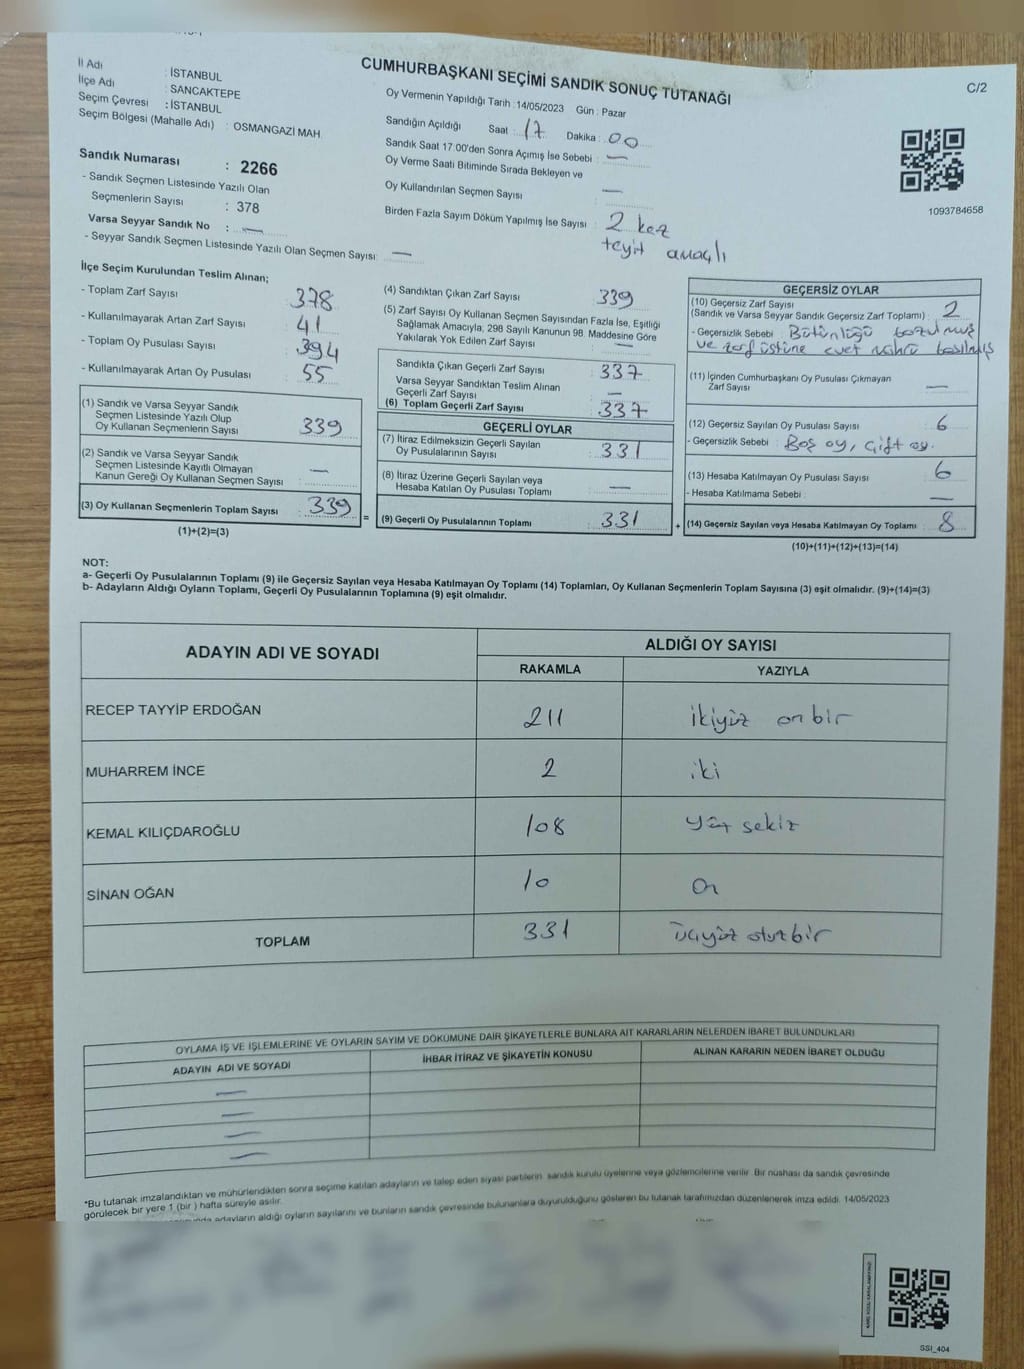 C/2
CUMHURBAŞKANI SEÇİMİ SANDIK SONUÇ TUTANAĞI
İl Adı : İSTANBUL
İlçe Adı : SANCAKTEPE
Seçim Çevresi : İSTANBUL
Seçim Bölgesi (Mahalle Adı) : OSMANGAZİ MAH.
Sandık Numarası : 2266
- Sandık Seçmen Listesinde Yazılı Olan
Seçmenlerin Sayısı : 378
Varsa Seyyar Sandık No : —
- Seyyar Sandık Seçmen Listesinde Yazılı Olan Seçmen Sayısı : —
Oy Vermenin Yapıldığı Tarih : 14/05/2023 Gün : Pazar
Sandığın Açıldığı Saat : 17 Dakika : 00
Sandık Saat 17.00'den Sonra Açımış İse Sebebi : —
Oy Verme Saati Bitiminde Sırada Bekleyen ve
Oy Kullandırılan Seçmen Sayısı : —
Birden Fazla Sayım Döküm Yapılmış İse Sayısı : 2 kez
teyit amaçlı
1093784658
İlçe Seçim Kurulundan Teslim Alınan;
- Toplam Zarf Sayısı : 378
- Kullanılmayarak Artan Zarf Sayısı : 41
- Toplam Oy Pusulası Sayısı : 394
- Kullanılmayarak Artan Oy Pusulası : 55
(1) Sandık ve Varsa Seyyar Sandık
Seçmen Listesinde Yazılı Olup
Oy Kullanan Seçmenlerin Sayısı : 339
(2) Sandık ve Varsa Seyyar Sandık
Seçmen Listesinde Kayıtlı Olmayan
Kanun Gereği Oy Kullanan Seçmen Sayısı : —
(3) Oy Kullanan Seçmenlerin Toplam Sayısı : 339
(1)+(2)=(3)
=
(4) Sandıktan Çıkan Zarf Sayısı : 339
(5) Zarf Sayısı Oy Kullanan Seçmen Sayısından Fazla İse, Eşitliği
Sağlamak Amacıyla, 298 Sayılı Kanunun 98. Maddesine Göre
Yakılarak Yok Edilen Zarf Sayısı : —
Sandıkta Çıkan Geçerli Zarf Sayısı : 337
Varsa Seyyar Sandıktan Teslim Alınan
Geçerli Zarf Sayısı : —
(6) Toplam Geçerli Zarf Sayısı : 337
GEÇERLİ OYLAR
(7) İtiraz Edilmeksizin Geçerli Sayılan
Oy Pusulalarının Sayısı : 331
(8) İtiraz Üzerine Geçerli Sayılan veya
Hesaba Katılan Oy Pusulası Toplamı : —
(9) Geçerli Oy Pusulalarının Toplamı : 331
+
GEÇERSİZ OYLAR
(10) Geçersiz Zarf Sayısı
(Sandık ve Varsa Seyyar Sandık Geçersiz Zarf Toplamı) : 2
- Geçersizlik Sebebi : Bütünlüğü bozulmuş
ve zarf üstüne evet mührü basılmış
(11) İçinden Cumhurbaşkanı Oy Pusulası Çıkmayan
Zarf Sayısı : —
(12) Geçersiz Sayılan Oy Pusulası Sayısı : 6
- Geçersizlik Sebebi : Boş oy, çift oy.
(13) Hesaba Katılmayan Oy Pusulası Sayısı : 6
- Hesaba Katılmama Sebebi : —
(14) Geçersiz Sayılan veya Hesaba Katılmayan Oy Toplamı : 8
(10)+(11)+(12)+(13)=(14)
NOT:
a- Geçerli Oy Pusulalarının Toplamı (9) ile Geçersiz Sayılan veya Hesaba Katılmayan Oy Toplamı (14) Toplamları, Oy Kullanan Seçmenlerin Toplam Sayısına (3) eşit olmalıdır. (9)+(14)=(3)
b- Adayların Aldığı Oyların Toplamı, Geçerli Oy Pusulalarının Toplamına (9) eşit olmalıdır.
ADAYIN ADI VE SOYADI ALDIĞI OY SAYISI
RAKAMLA YAZIYLA
RECEP TAYYİP ERDOĞAN 211 ikiyüz on bir
MUHARREM İNCE 2 iki
KEMAL KILIÇDAROĞLU 108 yüz sekiz
SİNAN OĞAN 10 on
TOPLAM 331 üçyüz otuzbir
OYLAMA İŞ VE İŞLEMLERİNE VE OYLARIN SAYIM VE DÖKÜMÜNE DAİR ŞİKAYETLERLE BUNLARA AİT KARARLARIN NELERDEN İBARET BULUNDUKLARI
ADAYIN ADI VE SOYADI İHBAR İTİRAZ VE ŞİKAYETİN KONUSU ALINAN KARARIN NEDEN İBARET OLDUĞU
—
—
—
—
*Bu tutanak imzalandıktan ve mühürlendikten sonra seçime katılan adayların ve talep eden siyasi partilerin sandık kurulu üyelerine veya gözlemcilerine verilir. Bir nüshası da sandık çevresinde
görülecek bir yere 1 (bir ) hafta süreyle asılır.
adayların aldığı oyların sayılarını ve bunların sandık çevresinde bulunanlara duyurulduğunu gösteren bu tutanak tarafımızdan düzenlenerek imza edildi. 14/05/2023
SSI_404